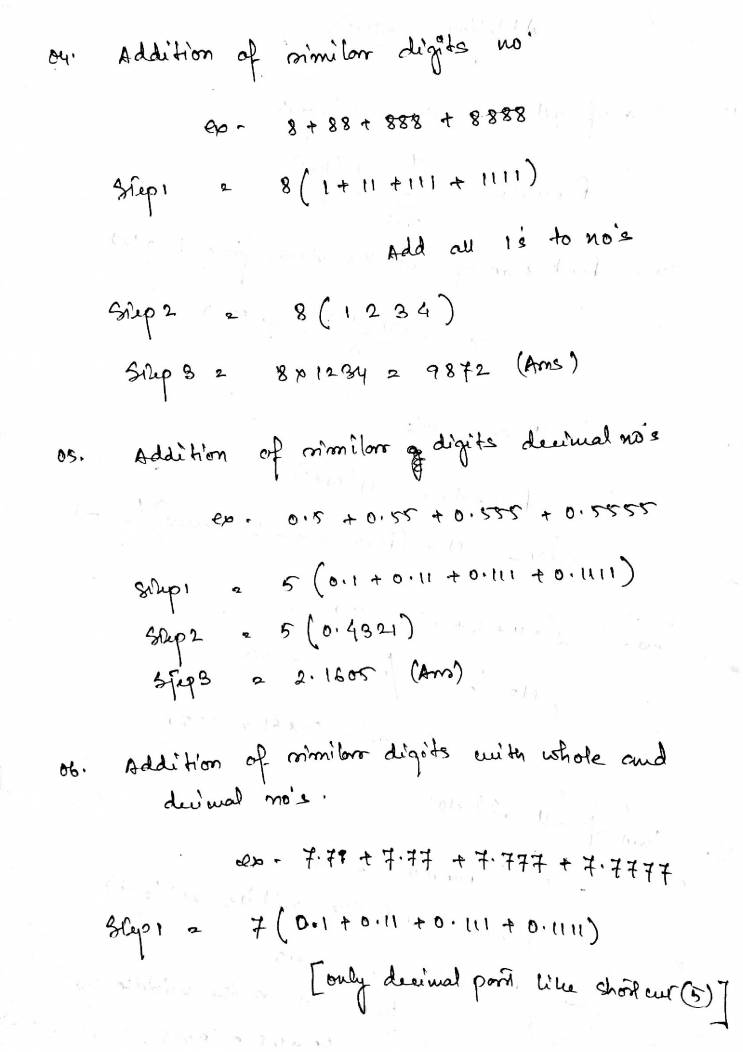 04. Addition of similar digits no'
ex - 8 + 88 + 888 + 8888
Step1 = 8 ( 1 + 11 + 111 + 1111 )
Add all 1's to no's
Step 2 = 8 ( 1 2 3 4 )
Step 3 = 8 x 1234 = 9872 (Ans)
05. Addition of similar digits decimal no's
ex - 0.5 + 0.55 + 0.555 + 0.5555
Step1 = 5 ( 0.1 + 0.11 + 0.111 + 0.1111 )
Step2 = 5 ( 0.4321 )
Step3 = 2.1605 (Ans)
06. Addition of similar digits with whole and
decimal no's.
ex - + 7.77 + 7.777 + 7.7777
Step1 = 7 ( 0.1 + 0.11 + 0.111 + 0.1111 )
[only decimal part like shortcut (5)]